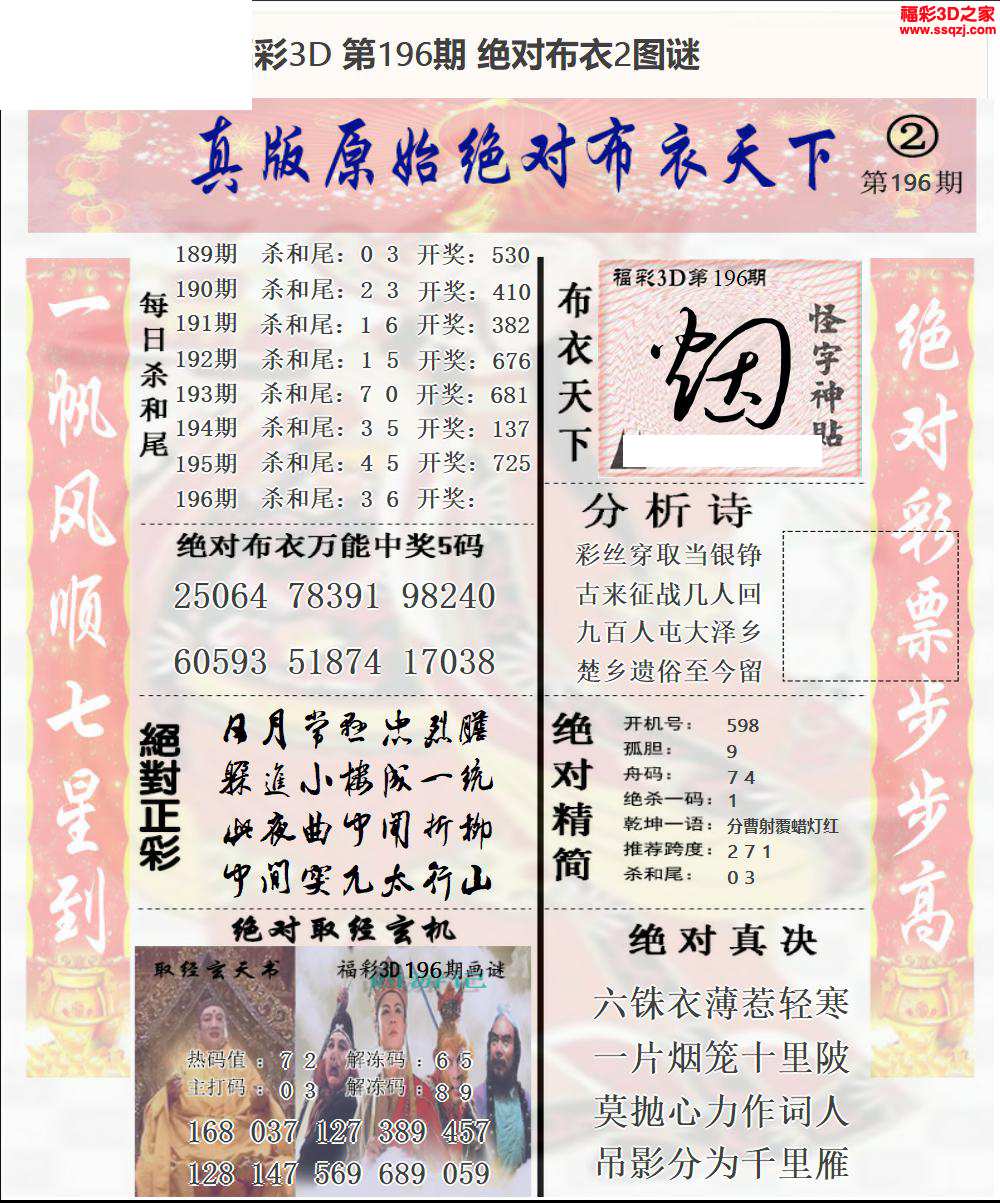 福彩3D之家
www.ssqzj.com
彩3D 第196期 绝对布衣2图谜
真版原始绝对布衣天下
②
第196期
一帆风顺七星到
每日杀和尾
189期 杀和尾：0 3 开奖：530
190期 杀和尾：2 3 开奖：410
191期 杀和尾：1 6 开奖：382
192期 杀和尾：1 5 开奖：676
193期 杀和尾：7 0 开奖：681
194期 杀和尾：3 5 开奖：137
195期 杀和尾：4 5 开奖：725
196期 杀和尾：3 6 开奖：
绝对布衣万能中奖5码
25064 78391 98240
60593 51874 17038
絕對正彩
日月常悬忠烈膽
躲進小楼成一统
此夜曲中闻折柳
中间突兀太行山
绝对取经玄机
取经玄天书
福彩3D196期画谜
热码值：7 2 解冻码：6 5
主打码：0 3 解冻码：8 9
168 037 127 389 457
128 147 569 689 059
布衣天下
福彩3D第196期
烟
怪字神貼
分析诗
彩丝穿取当银铮
古来征战几人回
九百人屯大泽乡
楚乡遗俗至今留
绝对精简
开机号： 598
孤胆： 9
舟码： 7 4
绝杀一码：1
乾坤一语：分曹射覆蜡灯红
推荐跨度：2 7 1
杀和尾： 0 3
绝对真决
六铢衣薄惹轻寒
一片烟笼十里陂
莫抛心力作词人
吊影分为千里雁
绝对彩票步步高